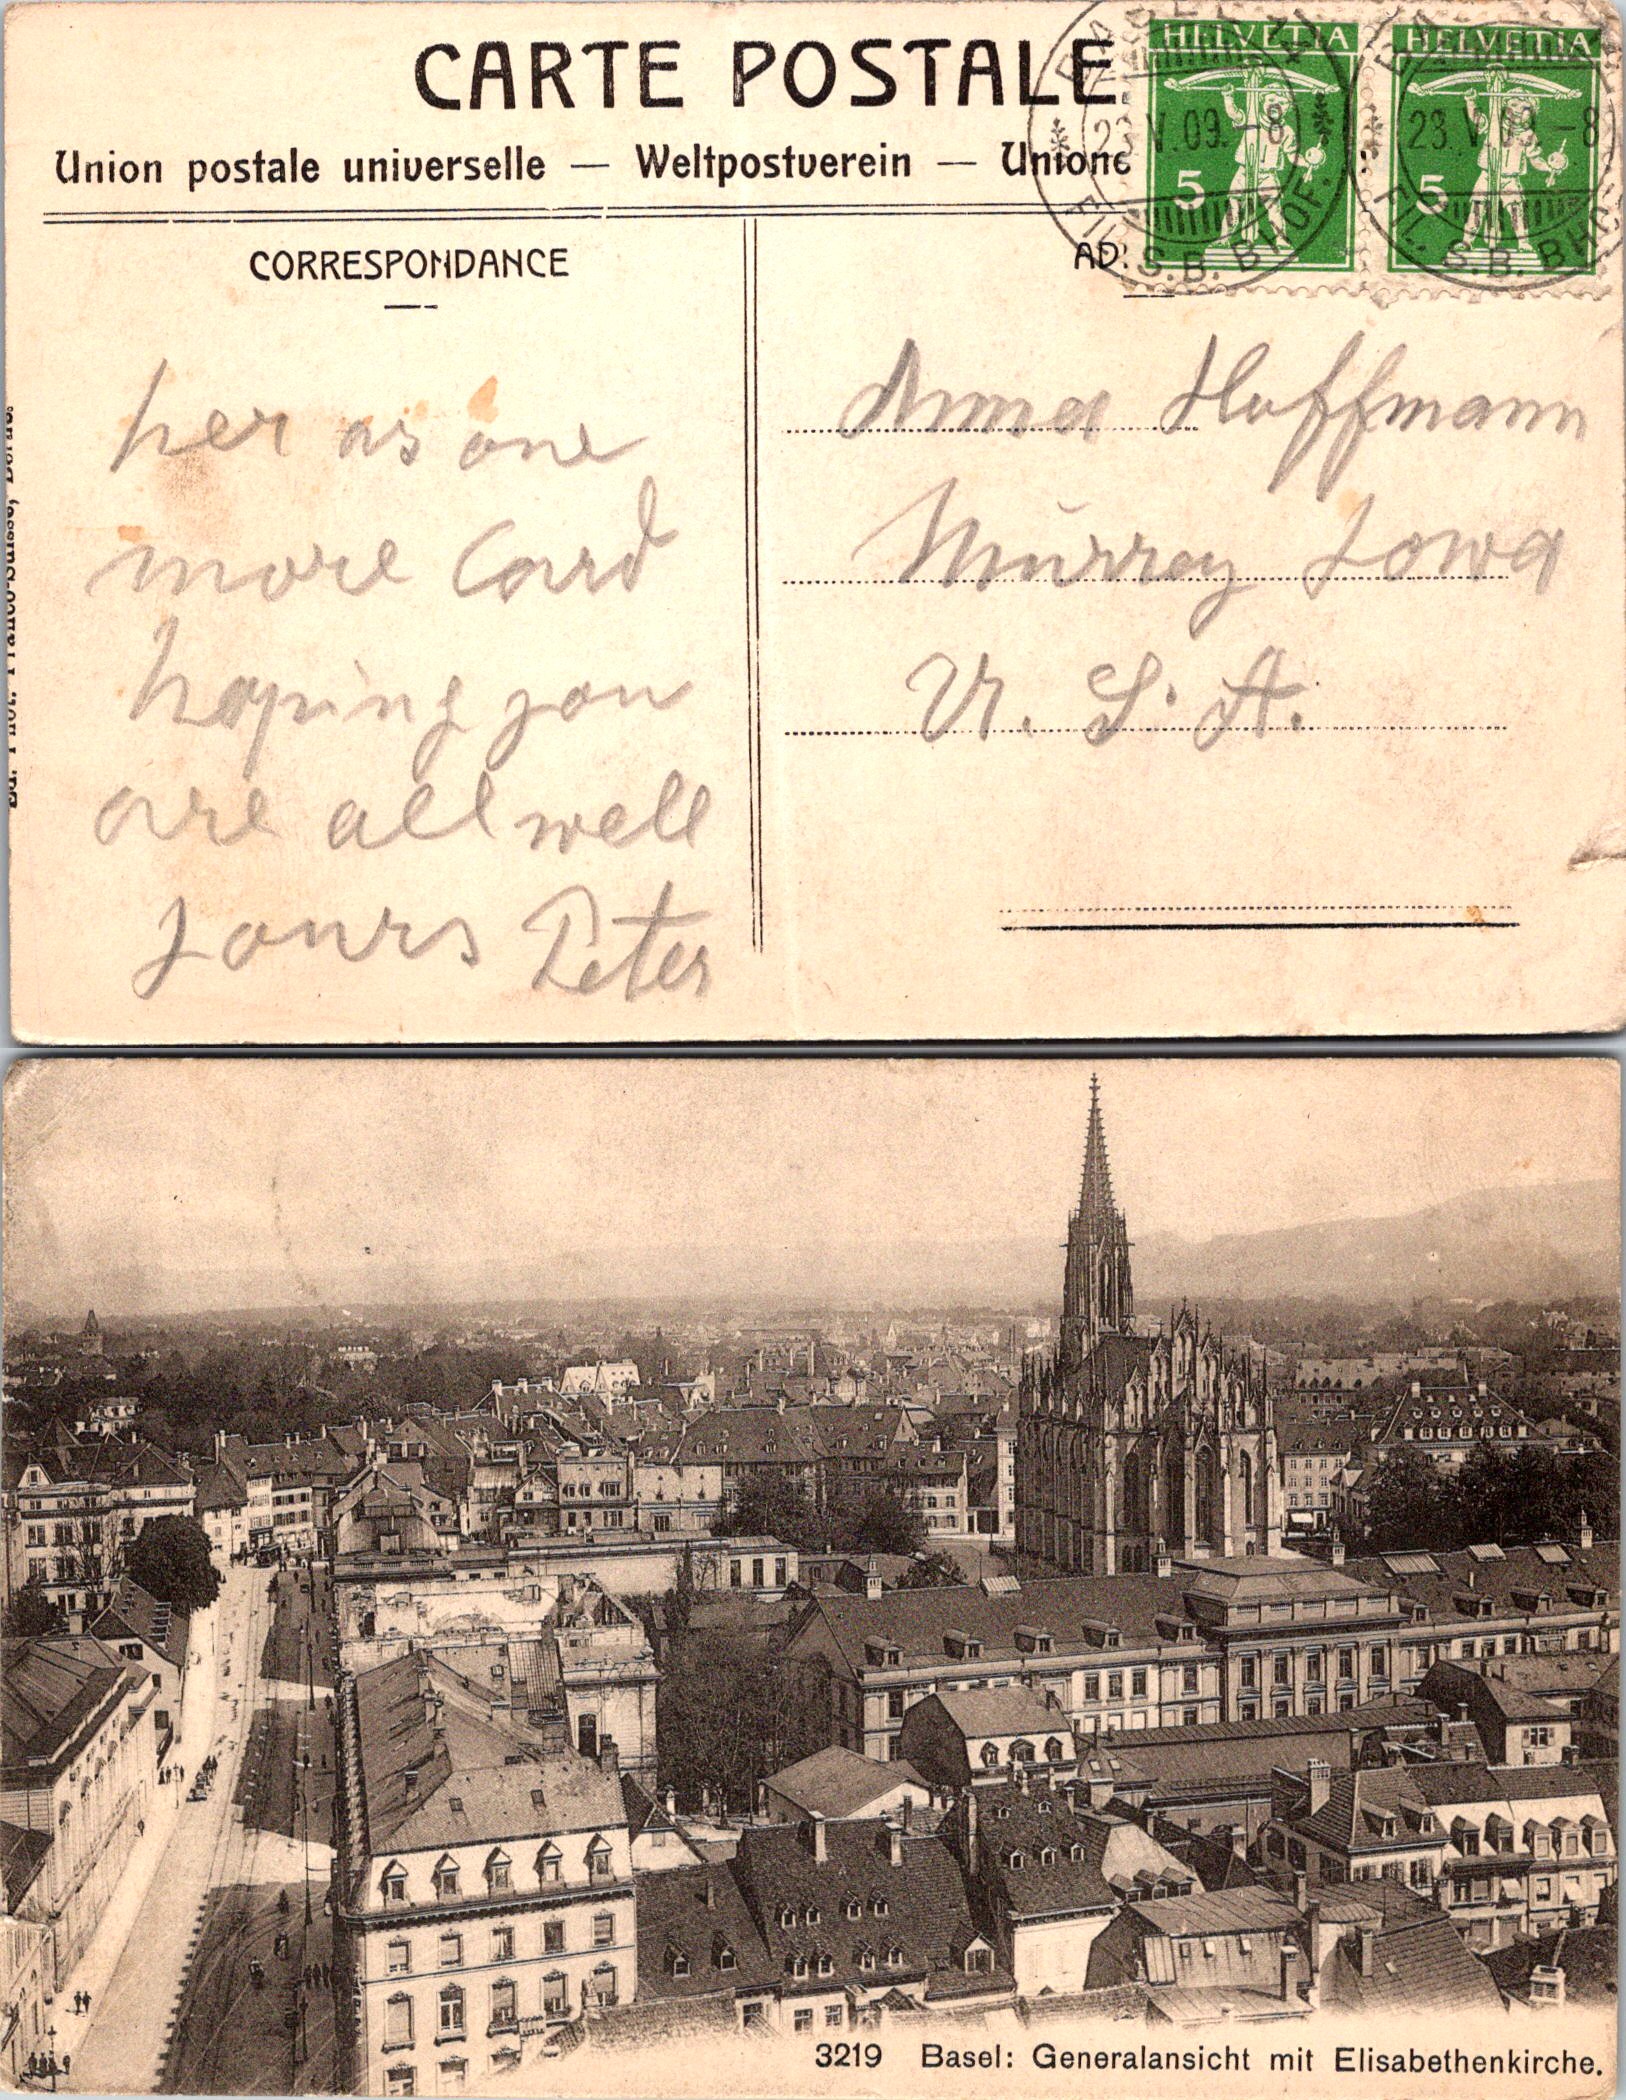 CARTE POSTALE
Union postale universelle — Weltpostverein — Unione
CORRESPONDANCE
AD
HELVETIA
5
HELVETIA
5
BASEL
23.V.09.-8
FIL. S.B. BHOF.
23.V.09.-8
FIL. S.B. BHO
her as one
more Card
hoping you
are all well
Yours Peter
Anna Hoffmann
Murray Iowa
U. S. A.
3219 Basel: Generalansicht mit Elisabethenkirche.